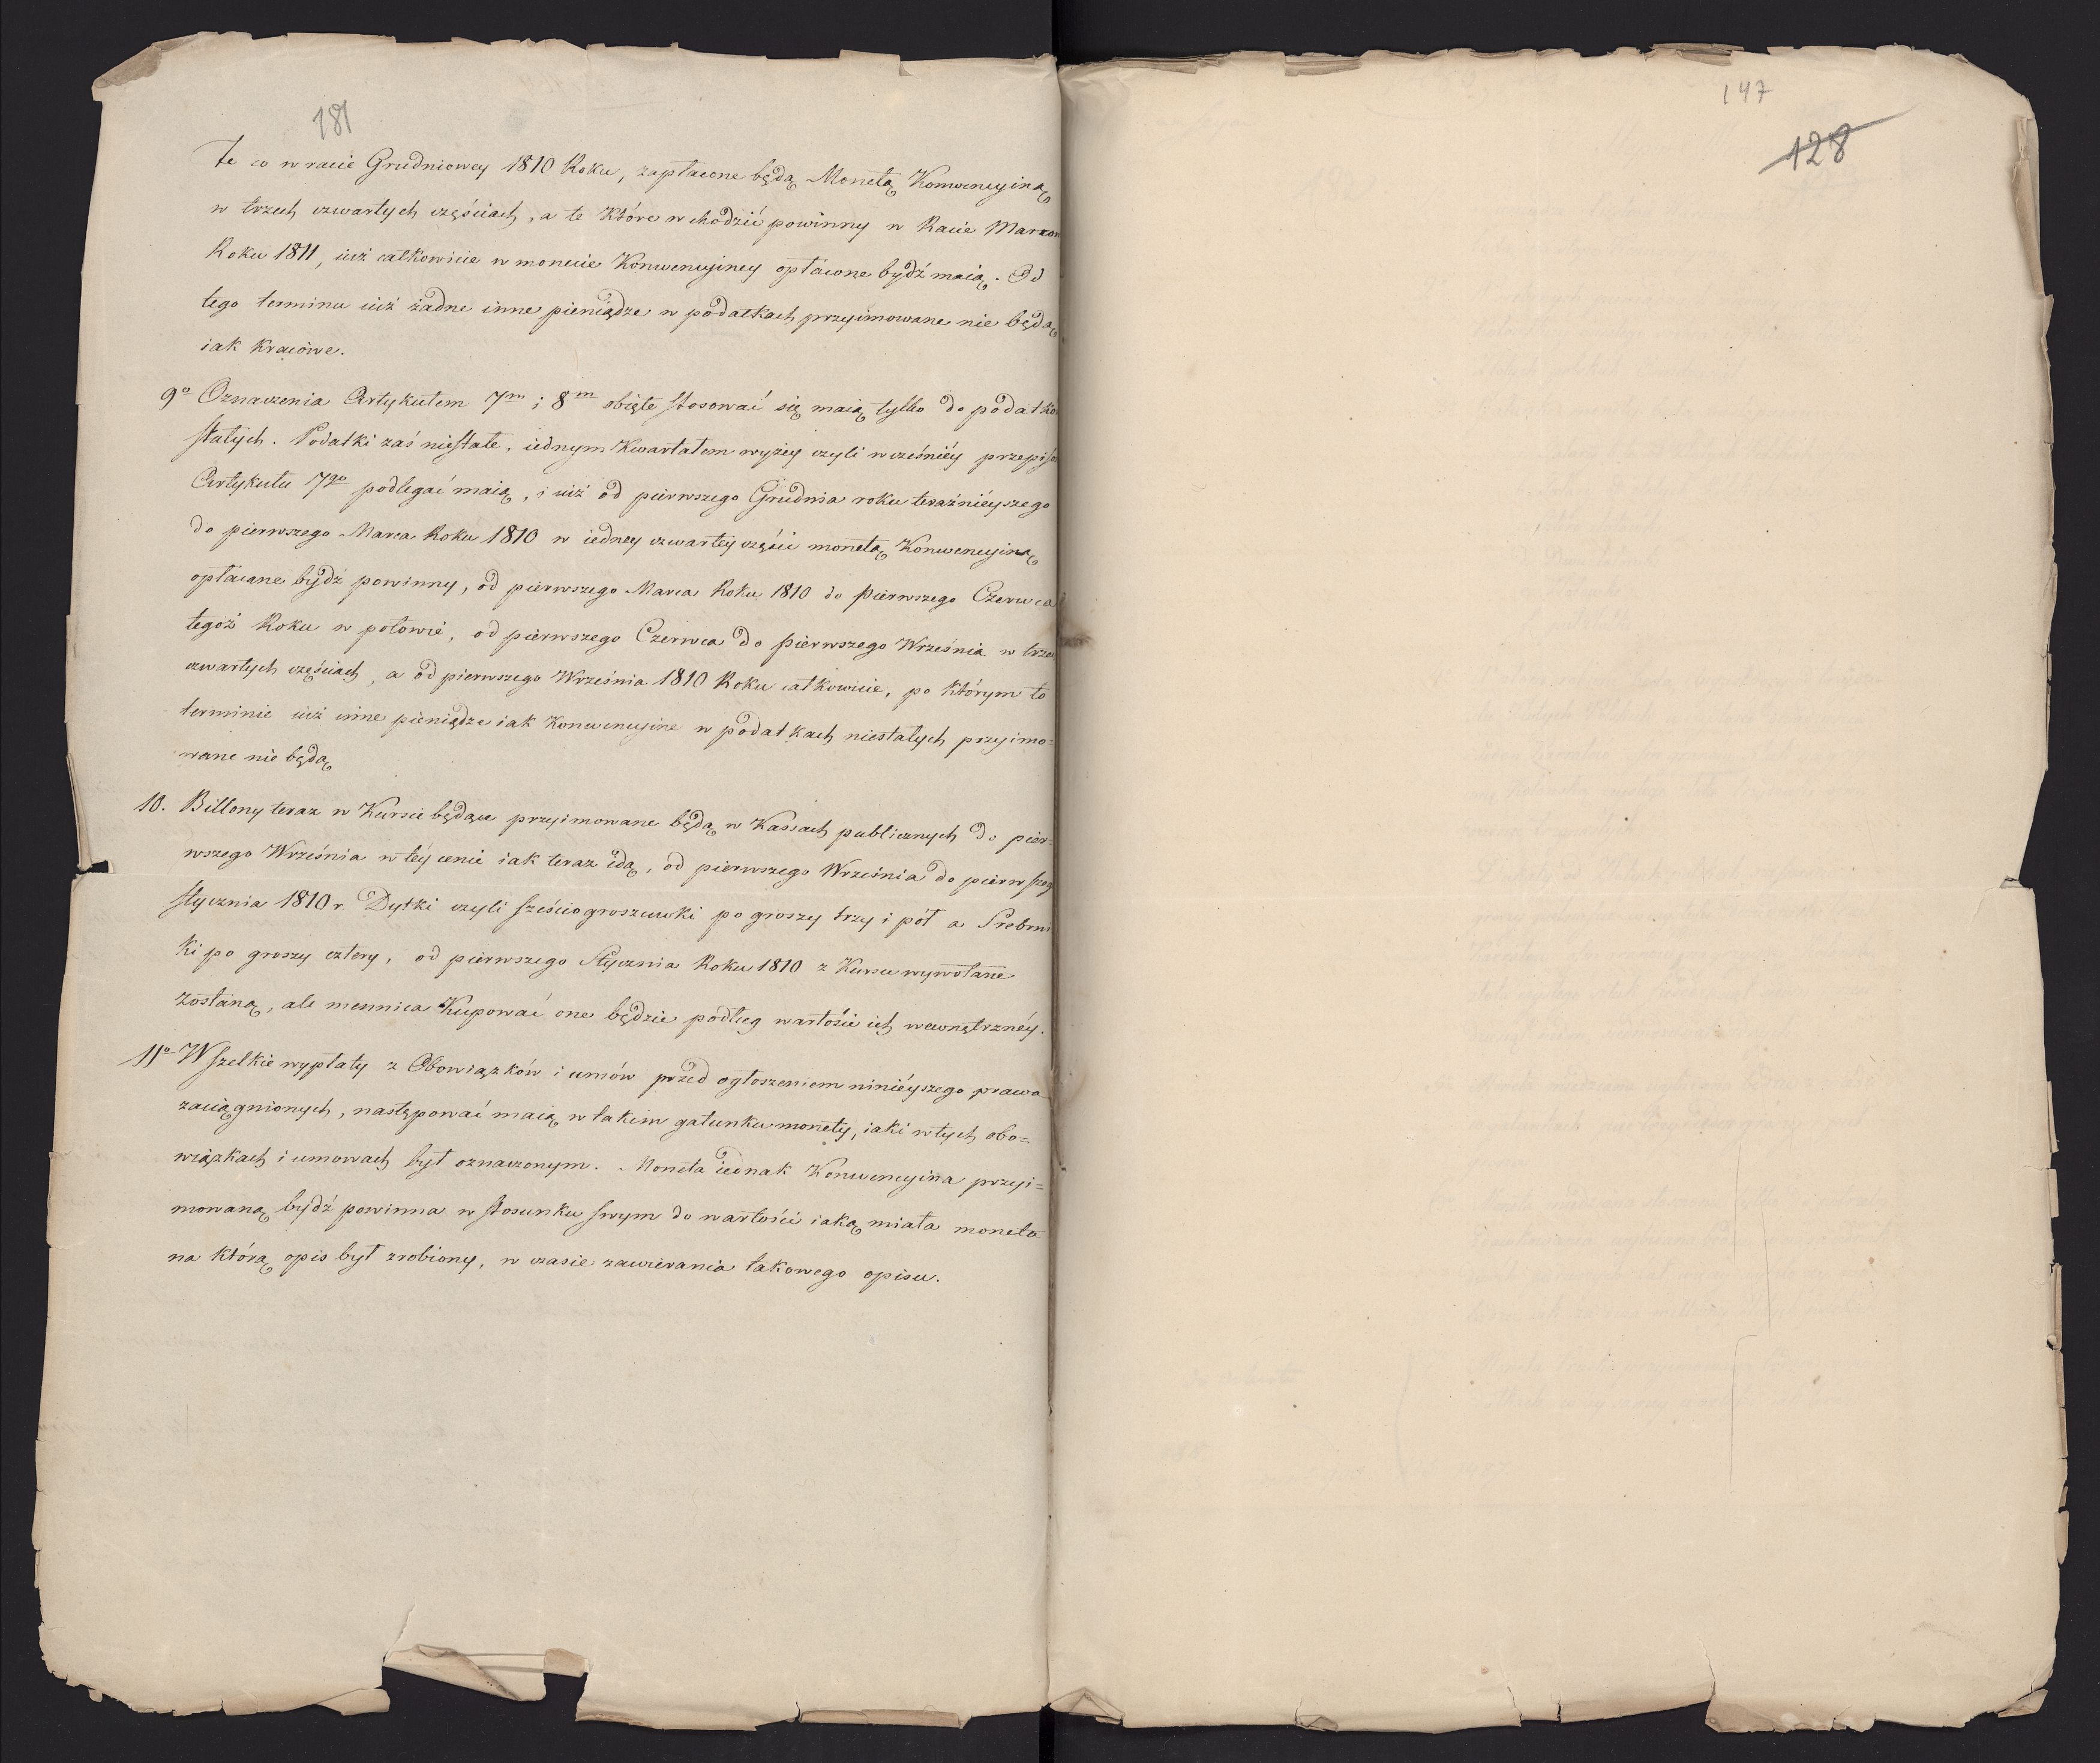 181
te co w racie Grudniowey 1810 Roku, zapłacone będą Monetą Konwencyiną
w trzech czwartych częściach, a te które wchodzić powinny w Racie Marcow
Roku 1811, iuż całkowicie w monecie Konwencyiney opłacone bydź maią. Od
tego terminu iuż żadne inne pieniądze w podatkach przyimowane nie będą
iak kraiowe.
9o Oznaczenia Artykułem 7m i 8m obięte stosować się maią tylko do podatko
stałych. Podatki zaś niestałe, iednym Kwartałem wyżey czyli wcześniéy przepiso
Artykułu 7go podlegać maią, i iuż od pierwszego Grudnia roku teraźniéyszego
do pierwszego Marca Roku 1810 w iedney czwartéy części monetą Konwencyiną
opłacane bydź powinny, od pierwszego Marca Roku 1810 do pierwszego Czerwca
tegoż Roku w połowie, od pierwszego Czerwca do pierwszego Września w trze
czwartych częściach, a od pierwszego Września 1810 Roku całkowicie, po którym to
terminie iuż inne pieniądze iak Konwencyine w podatkach niestałych przyimo=
wane nie będą
10. Billony teraz w Kursie będące przyimowane będą w Kassach publicznych do pier=
wszego Września w téy cenie iak teraz idą, od pierwszego Września do pierwszeg
stycznia 1810 r. Dytki czyli sześciogroszówki po groszy trzy i pół a Srebrni
ki po groszy cztery, od pierwszego Stycznia Roku 1810 z Kursu wywołane
zostaną, ale mennica Kupować one będzie podług wartości ich wewnętrznéy.
11o Wszelkie wypłaty z Obowiązków i umów przed ogłoszeniem niniéyszego prawa
zaciągnionych, następować maią w takim gatunku monety, iaki w tych obo=
wiązkach i umowach był oznaczonym. Moneta iednak Konwencyina przyi=
mowaną bydź powinna w stosunku swym do wartości iaką miała moneta
na którą opis był zrobiony, w czasie zawierania takowego opisu.
147
128